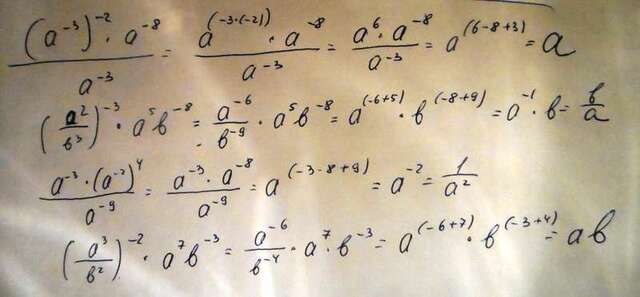 \frac{(a^{-3})^{-2} \cdot a^{-8}}{a^{-3}} = \frac{a^{(-3 \cdot (-2))} \cdot a^{-8}}{a^{-3}} = \frac{a^{6} \cdot a^{-8}}{a^{-3}} = a^{(6-8+3)} = a
(\frac{a^{2}}{b^{3}})^{-3} \cdot a^{5} b^{-8} = \frac{a^{-6}}{b^{-9}} \cdot a^{5} b^{-8} = a^{(-6+5)} \cdot b^{(-8+9)} = a^{-1} \cdot b = \frac{b}{a}
\frac{a^{-3} \cdot (a^{-2})^{4}}{a^{-9}} = \frac{a^{-3} \cdot a^{-8}}{a^{-9}} = a^{(-3-8+9)} = a^{-2} = \frac{1}{a^{2}}
(\frac{a^{3}}{b^{2}})^{-2} \cdot a^{7} b^{-3} = \frac{a^{-6}}{b^{-4}} \cdot a^{7} \cdot b^{-3} = a^{(-6+7)} \cdot b^{(-3+4)} = ab